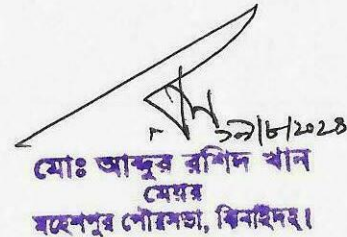 ১৯/৮/২০২৪
মোঃ আব্দুর রশিদ খান
মেয়র
মহেশপুর পৌরসভা, ঝিনাইদহ।